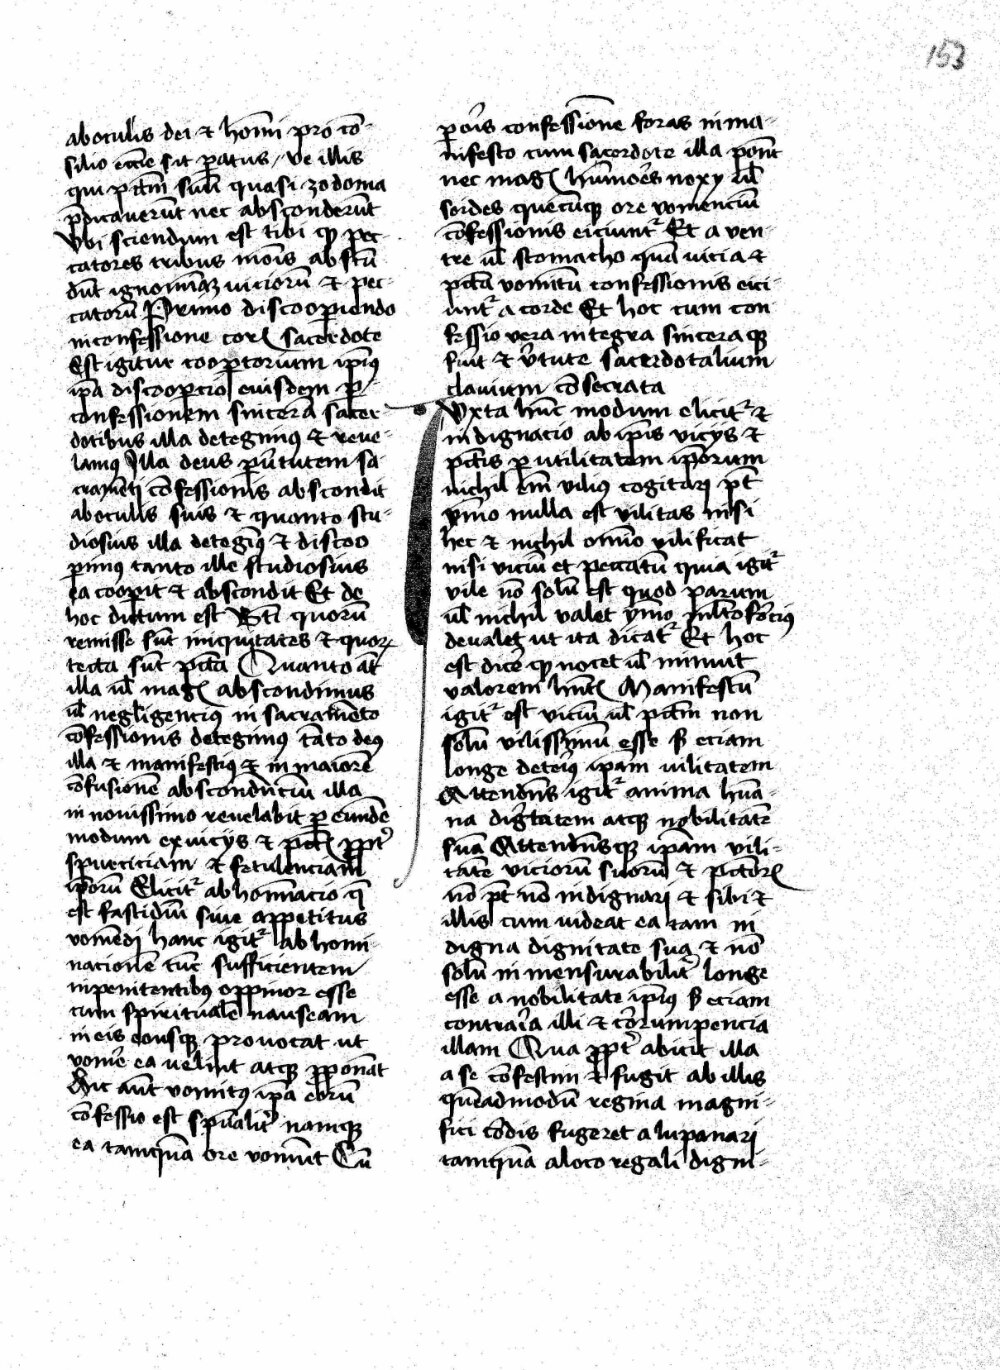 153
ab oculis dei ⁊ homī pro cō-
silio ecc̄ie sit paratus, ve illis
qui pctm̄ suū quasi zodoma
p̄dicauerūt nec absconderūt
Vbi sciendum est tibi qp̄ pec-
catores tribus mōis abscū-
dūt ignomīaz viciorū ⁊ pec-
catorū Primo discooperiendo
in confessione corā sacerdote
Est igitur coopertorium ip̄ius
ip̄a discoopercio eiusdem per
confessionem sincera sacer-
dotibus illa detegimus ⁊ reue-
lamus Illa deus per v̄tutem sa-
cramēti cōfessionis abscondit
ab oculis suis ⁊ quanto stu-
diosius illa detegim9 ⁊ discoo-
perimus tanto ille studiosius
ea cooperit ⁊ abscondit Et de
hoc dictum est Bt̄i quorū
remisse sūt iniquitates ⁊ quorꝝ
tecta sūt pctā Quanto at̄
illa ul̄ maḡ abscondimus
ul̄ negligencius in sacramēto
cōfessionis detegimus tāto deus
illa ⁊ manifestius ⁊ in maiorē
cōfusionē abscondenciū illa
in nouissimo reuelabit per eundē
modum ex vicijs ⁊ pctīs ꝓpt̄
spurciciam ⁊ fetulenciam
ip̄orū Elicitr abhominacio q̄
est fastidiū siue appetitus
vomēdi hanc igitr abhomi-
nacionē tūc sufficientem
in penitentibus oppinor esse
cum spiritualē nauseam
in eis eousqꝫ prouocat ut
vomere ea velint atqꝫ ꝓponāt
Hic aūt vomitus ip̄a eorū
cōfessio est sp̄ualit̄ namqꝫ
ea tamquā ore vomūt Cū
per oris confessionē foras in ma-
nifesto cum sacerdote illa ponūt
nec maḡ humōes noxij ul̄
sordes quecūqꝫ ore vomenciū
cōfessionis eiciuntr Et a ven-
tre ul̄ stomacho quā vicia ⁊
pctā vomitū confessionis eici-
untr a corde Et hoc cum con-
fessio vera integra sinceraqꝫ
fuit ⁊ v̄tute sacerdotalium
clauium cōsecrata
Iuxta hūc modum elicitr ⁊
indignacio ab ip̄is vicijs ⁊
pctīs per vtilitatem ip̄orum
nichil em̄ vilius cogitari pt̄
ymo nulla est vilitas nisi
hec ⁊ nichil omīo vilificat
nisi viciū et peccatū quia igitr
vile nō solū est quod parum
ul̄ nichil valet ymo mltōforcius
deualet ut ita dicatr Et hoc
est dicere qp̄ nocet ul̄ minuit
valorem hn̄tis Manifestū
igitr est viciū ul̄ pctm̄ non
solū vilissimū esse s̄ eciam
longe deterius ipam vilitatem
Attendēs igitr anima huā-
na dignitatem atqꝫ nobilitatē
suā Attendēsqꝫ ipam vili-
tatē viciorū suorū ⁊ pctorū
nō pt̄ nō indignari ⁊ sibi ⁊
illis cum videat ea tam in-
digna dignitate sua ⁊ nō
solū in mensurabilitr longe
esse a nobilitate ip̄ius s̄ eciam
contraria illi ⁊ corrumpencia
illam Qua ꝓpt̄ abicit illa
a se cōfestim ⁊ fugit ab illis
quēadmodū regina magni-
fici cōdis fugeret a lupanari
tamquā a loco regali digni-